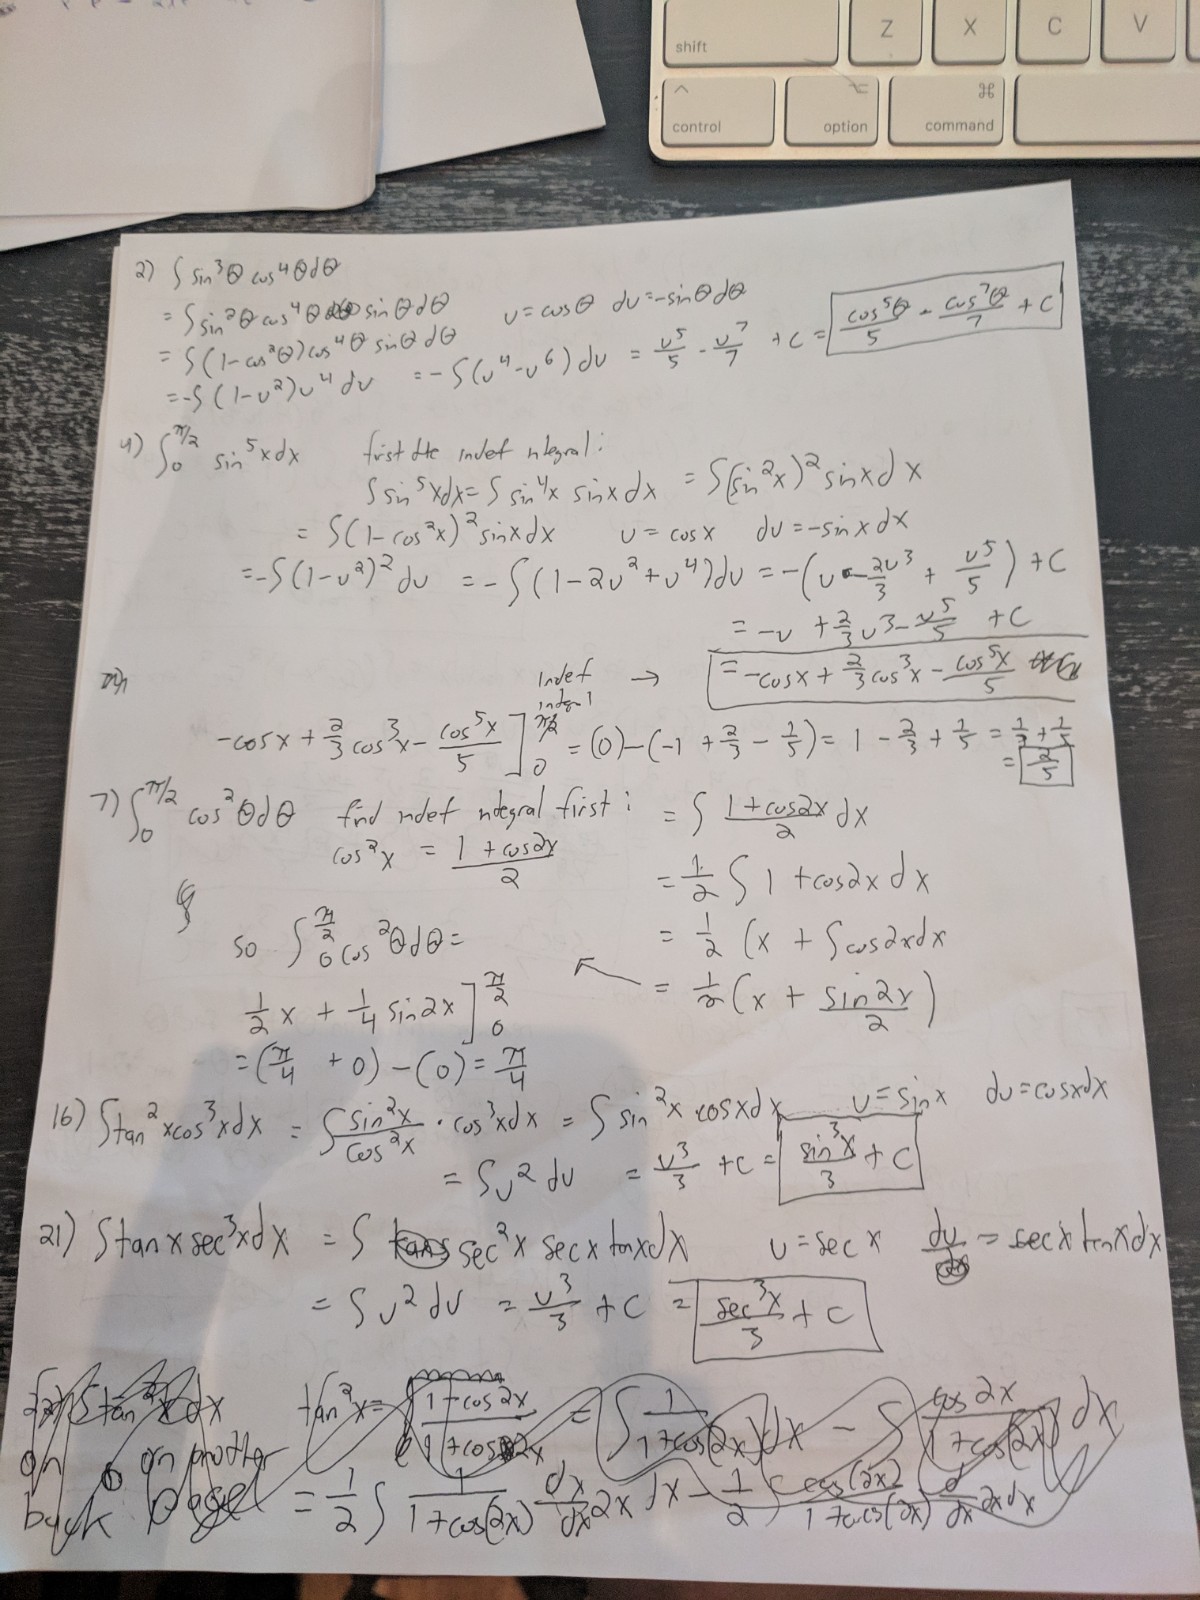 shift Z X C V
^ ⌥ ⌘
control option command
2) ∫ sin³θ cos⁴θdθ
= ∫ sin²θ cos⁴θ sinθdθ u = cosθ du = -sinθdθ
= ∫(1-cos²θ)cos⁴θ sinθdθ
= -∫(1-u²)u⁴du = -∫(u⁴-u⁶)du = u⁵/5 - u⁷/7 + C = cos⁵θ/5 - cos⁷θ/7 + C
4) ∫₀^π/2 sin⁵xdx first the indef ntegral:
∫sin⁵xdx = ∫ sin⁴x sinxdx = ∫(sin²x)² sinxdx
= ∫(1-cos²x)² sinxdx u = cosx du = -sinxdx
= -∫(1-u²)²du = -∫(1-2u²+u⁴)du = -(u - 2u³/3 + u⁵/5) + C
= -u + 2/3 u³ - u⁵/5 + C
Indef → = -cosx + 2/3 cos³x - cos⁵x/5
-cosx + 2/3 cos³x - cos⁵x/5 ]₀^π/2 = (0)-(-1 + 2/3 - 1/5) = 1 - 2/3 + 1/5 = 1/3 + 1/5
= 2/5
7) ∫₀^π/2 cos²θdθ find ndef ntegral first: = ∫ 1+cos2x/2 dx
cos²x = 1+cos2x/2
= 1/2 ∫ 1+cos2x dx
so ∫₀^π/2 cos²θdθ = = 1/2 (x + ∫cos2xdx
= 1/2 (x + sin2x/2)
1/2 x + 1/4 sin2x ]₀^π/2
= (π/4 + 0) - (0) = π/4
16) ∫tan²xcos³xdx = ∫ sin²x/cos²x · cos³xdx = ∫ sin²x cosxdx u = sinx du = cosxdx
= ∫u²du = u³/3 + C = sin³x/3 + C
21) ∫tanx sec³xdx = ∫ sec²x secx tanxdx u = secx du = secx tanxdx
= ∫u²du = u³/3 + C = sec³x/3 + C
∫tan²x dx tan²x = 1-cos2x/1+cos2x = ∫ 1/1+cos(2x) dx - ∫ cos2x/1+cos(2x) dx
on on another
back page! = 1/2 ∫ 1/1+cos(2x) dx/dx 2x dx - 1/2 ∫ cos(2x)/1+cos(2x) d/dx 2x dx